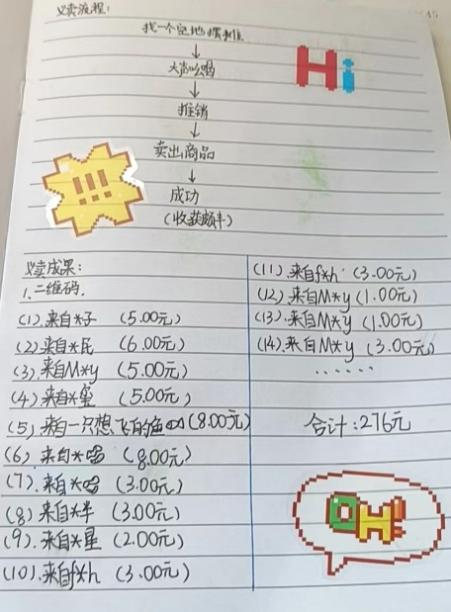 义卖流程:
找一个空地摆摊
↓
大声吆喝
↓
推销
↓
卖出商品
↓
成功
(收获颇丰)
Hi
!!!
义卖成果:
1.二维码.
(1).来自*子 (5.00元)
(2).来自*民 (6.00元)
(3).来自M*y (5.00元)
(4) 来自* (5.00元)
(5) 来自一只想飞的鱼 (8.00元)
(6) 来自* (8.00元)
(7).来自* (3.00元)
(8) 来自*半 (3.00元)
(9).来自*星 (2.00元)
(10).来自f*h (3.00元)
(11).来自f*h (3.00元)
(12).来自M*y (1.00元)
(13).来自M*y (1.00元)
(14).来自M*y (3.00元)
······
合计:276元
OK